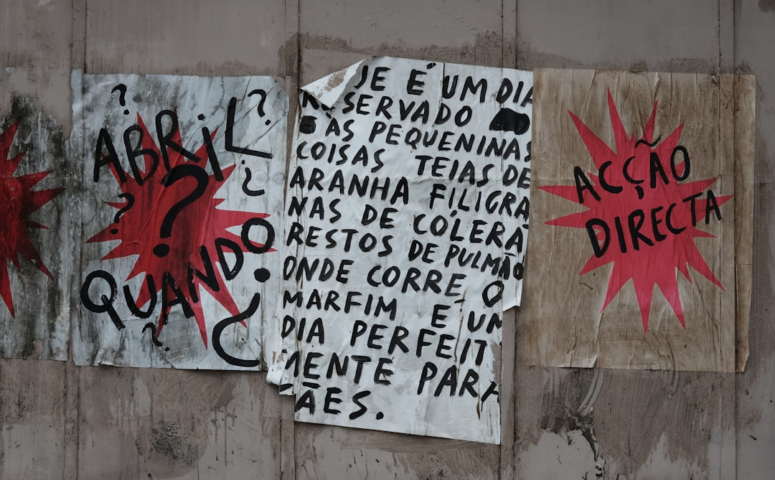 ? ?
ABRIL
?
? ?
QUANDO
? ¿
JE É UM DIA
SERVADO
ÀS PEQUENINAS
COISAS TEIAS DE
ARANHA FILIGRA
NAS DE CÓLERA
RESTOS DE PULMÃO
ONDE CORRE O
MARFIM E UM
DIA PERFEIT
MENTE PARA
ÃES.
ACÇÃO
DIRECTA